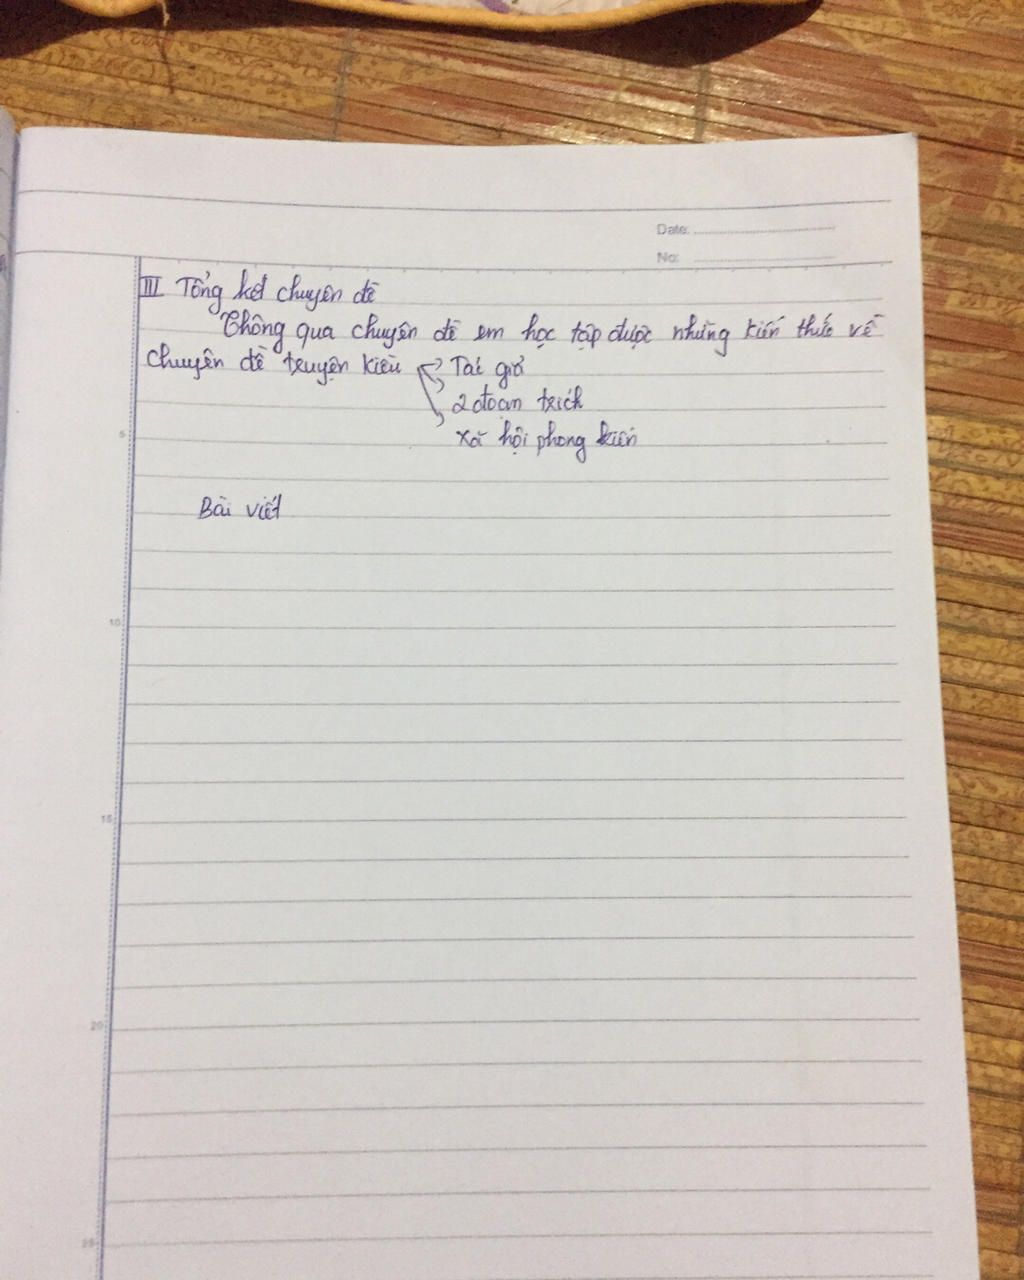 Date:
No:
III Tổng kết chuyên đề
Thông qua chuyên đề em học tập được những kiến thức về
chuyên đề truyện kiều Tác giả
2 đoạn trích
xã hội phong kiến
5
Bài viết
10
15
20
25